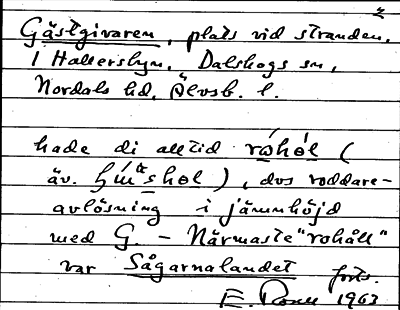 2
Gästgivaren, plats vid stranden,
i Hallersbyn, Dalskogs sn,
Nordals hd, Älvsb. l.
hade di alltid róhól (
äv. hól), dvs roddare-
avlösning i jämnhöjd
med G. - Närmaste "rohåll"
var Sågarnalandet forts.
E. 1963